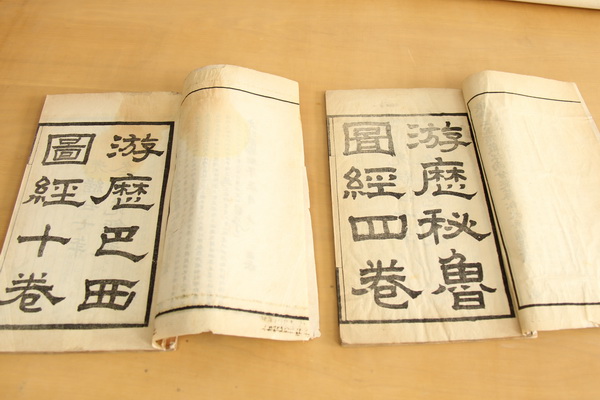 游歷巴西
圖經十卷
游歷秘魯
圖經四卷